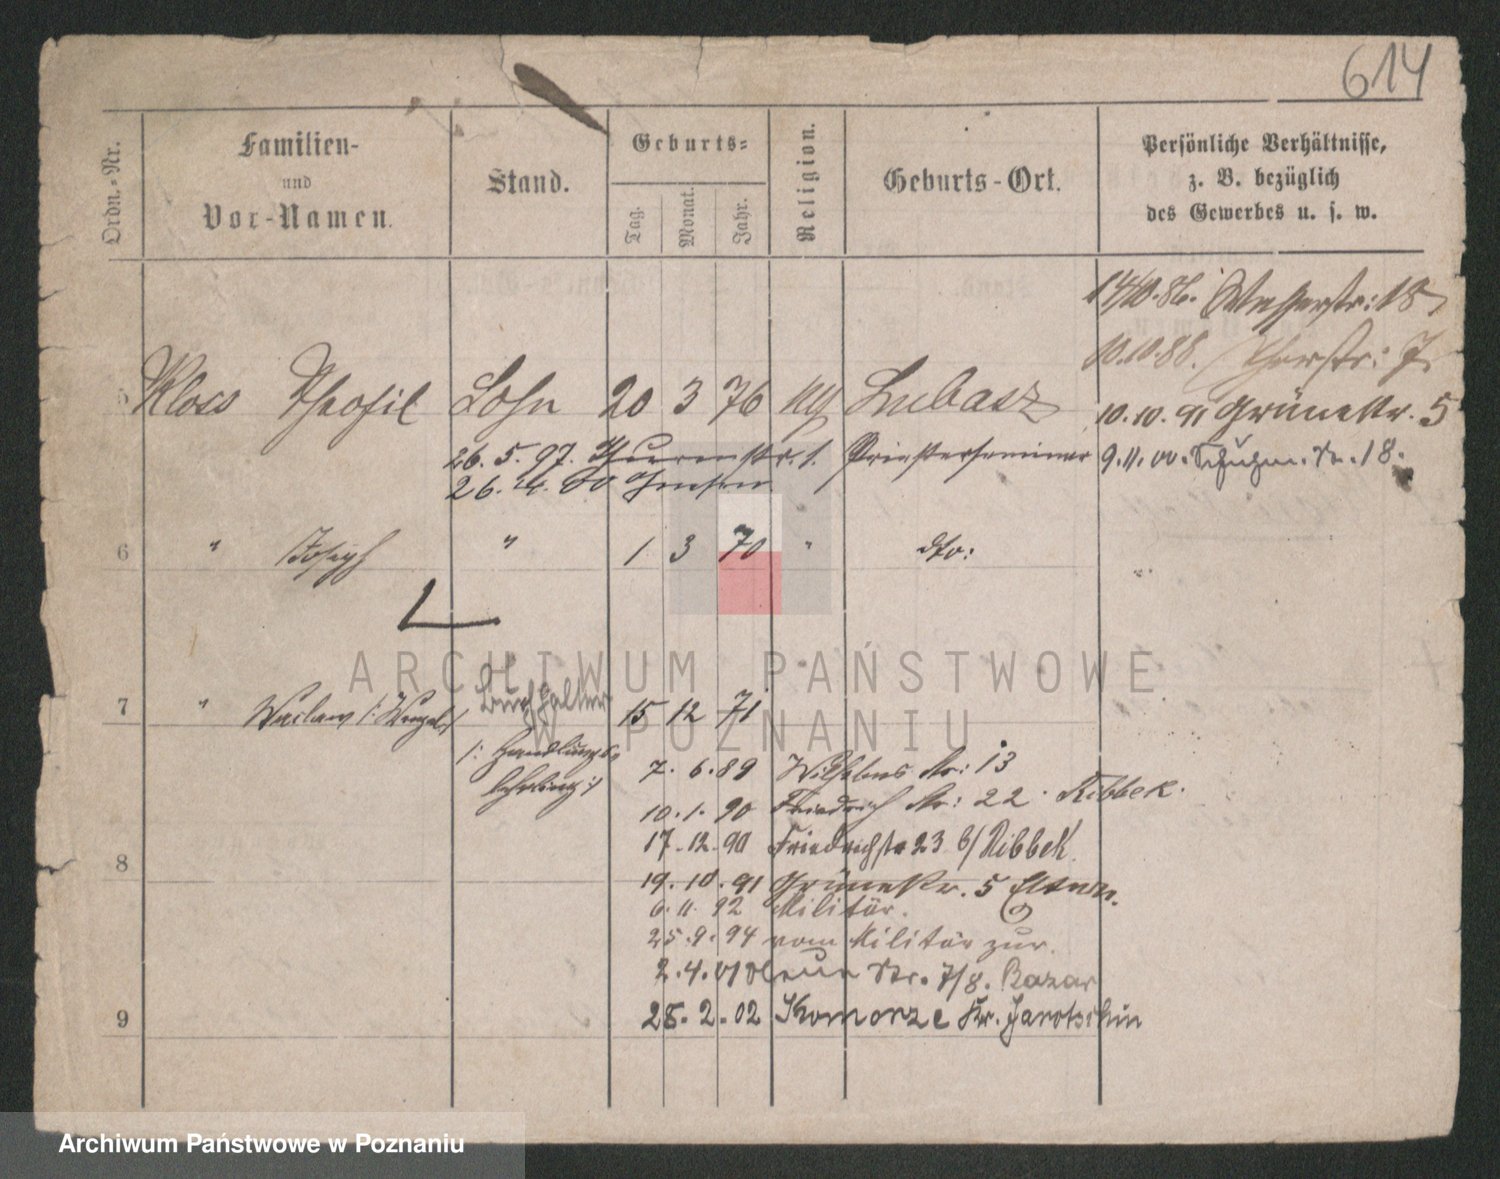 614
Ordn.-Nr.
Familien-
und
Vor-Namen.
Stand.
Geburts-
Tag.
Monat.
Jahr.
Religion.
Geburts-Ort.
Persönliche Verhältnisse,
z. B. bezüglich
des Gewerbes u. s. w.
14/10.86. 18
10.10.88. 7
5 Kloss Theofil Sohn 20 3 76 Lubasz
10.10.91 Grünestr. 5
26.5.97. str. 1. Priesterseminar
9.11.00. Schuhm. Str. 18.
26.4.00 Gnesen
6 " Joseph " 1 3 70 " dto:
7 " Waclaw /: Wenzel :/ Buchhalter 15 12 71
/: Handlungs-
lehrling :/
7. 6. 89 Wilhelms Str: 13
10. 1. 90 Friedrich Str: 22 Ribbek.
8 17. 12. 90 Friedrichstr 23 b/ Ribbek
19. 10. 91 Grünestr. 5 Eltern.
6. 11. 92 Militär.
25. 9. 94 vom Militär zur.
2. 4. 01 Neue Str. 7/8. Bazar
9 28. 2. 02 Komorze Kr. Jarotschin
ARCHIWUM PAŃSTWOWE
W POZNANIU
Archiwum Państwowe w Poznaniu